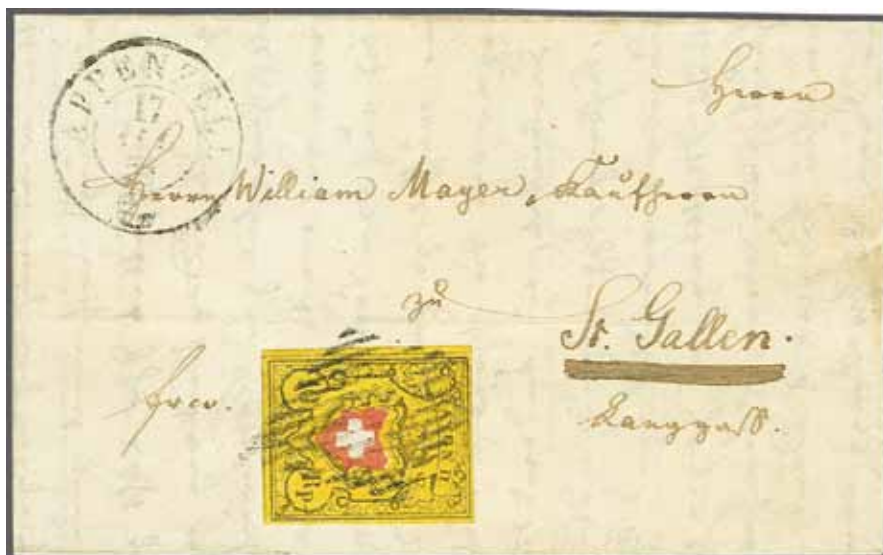 APPENZELL
17
Herrn
Herrn William Mayer, Kaufherrn
zu
St. Gallen.
frco.
Langgass.
Rp